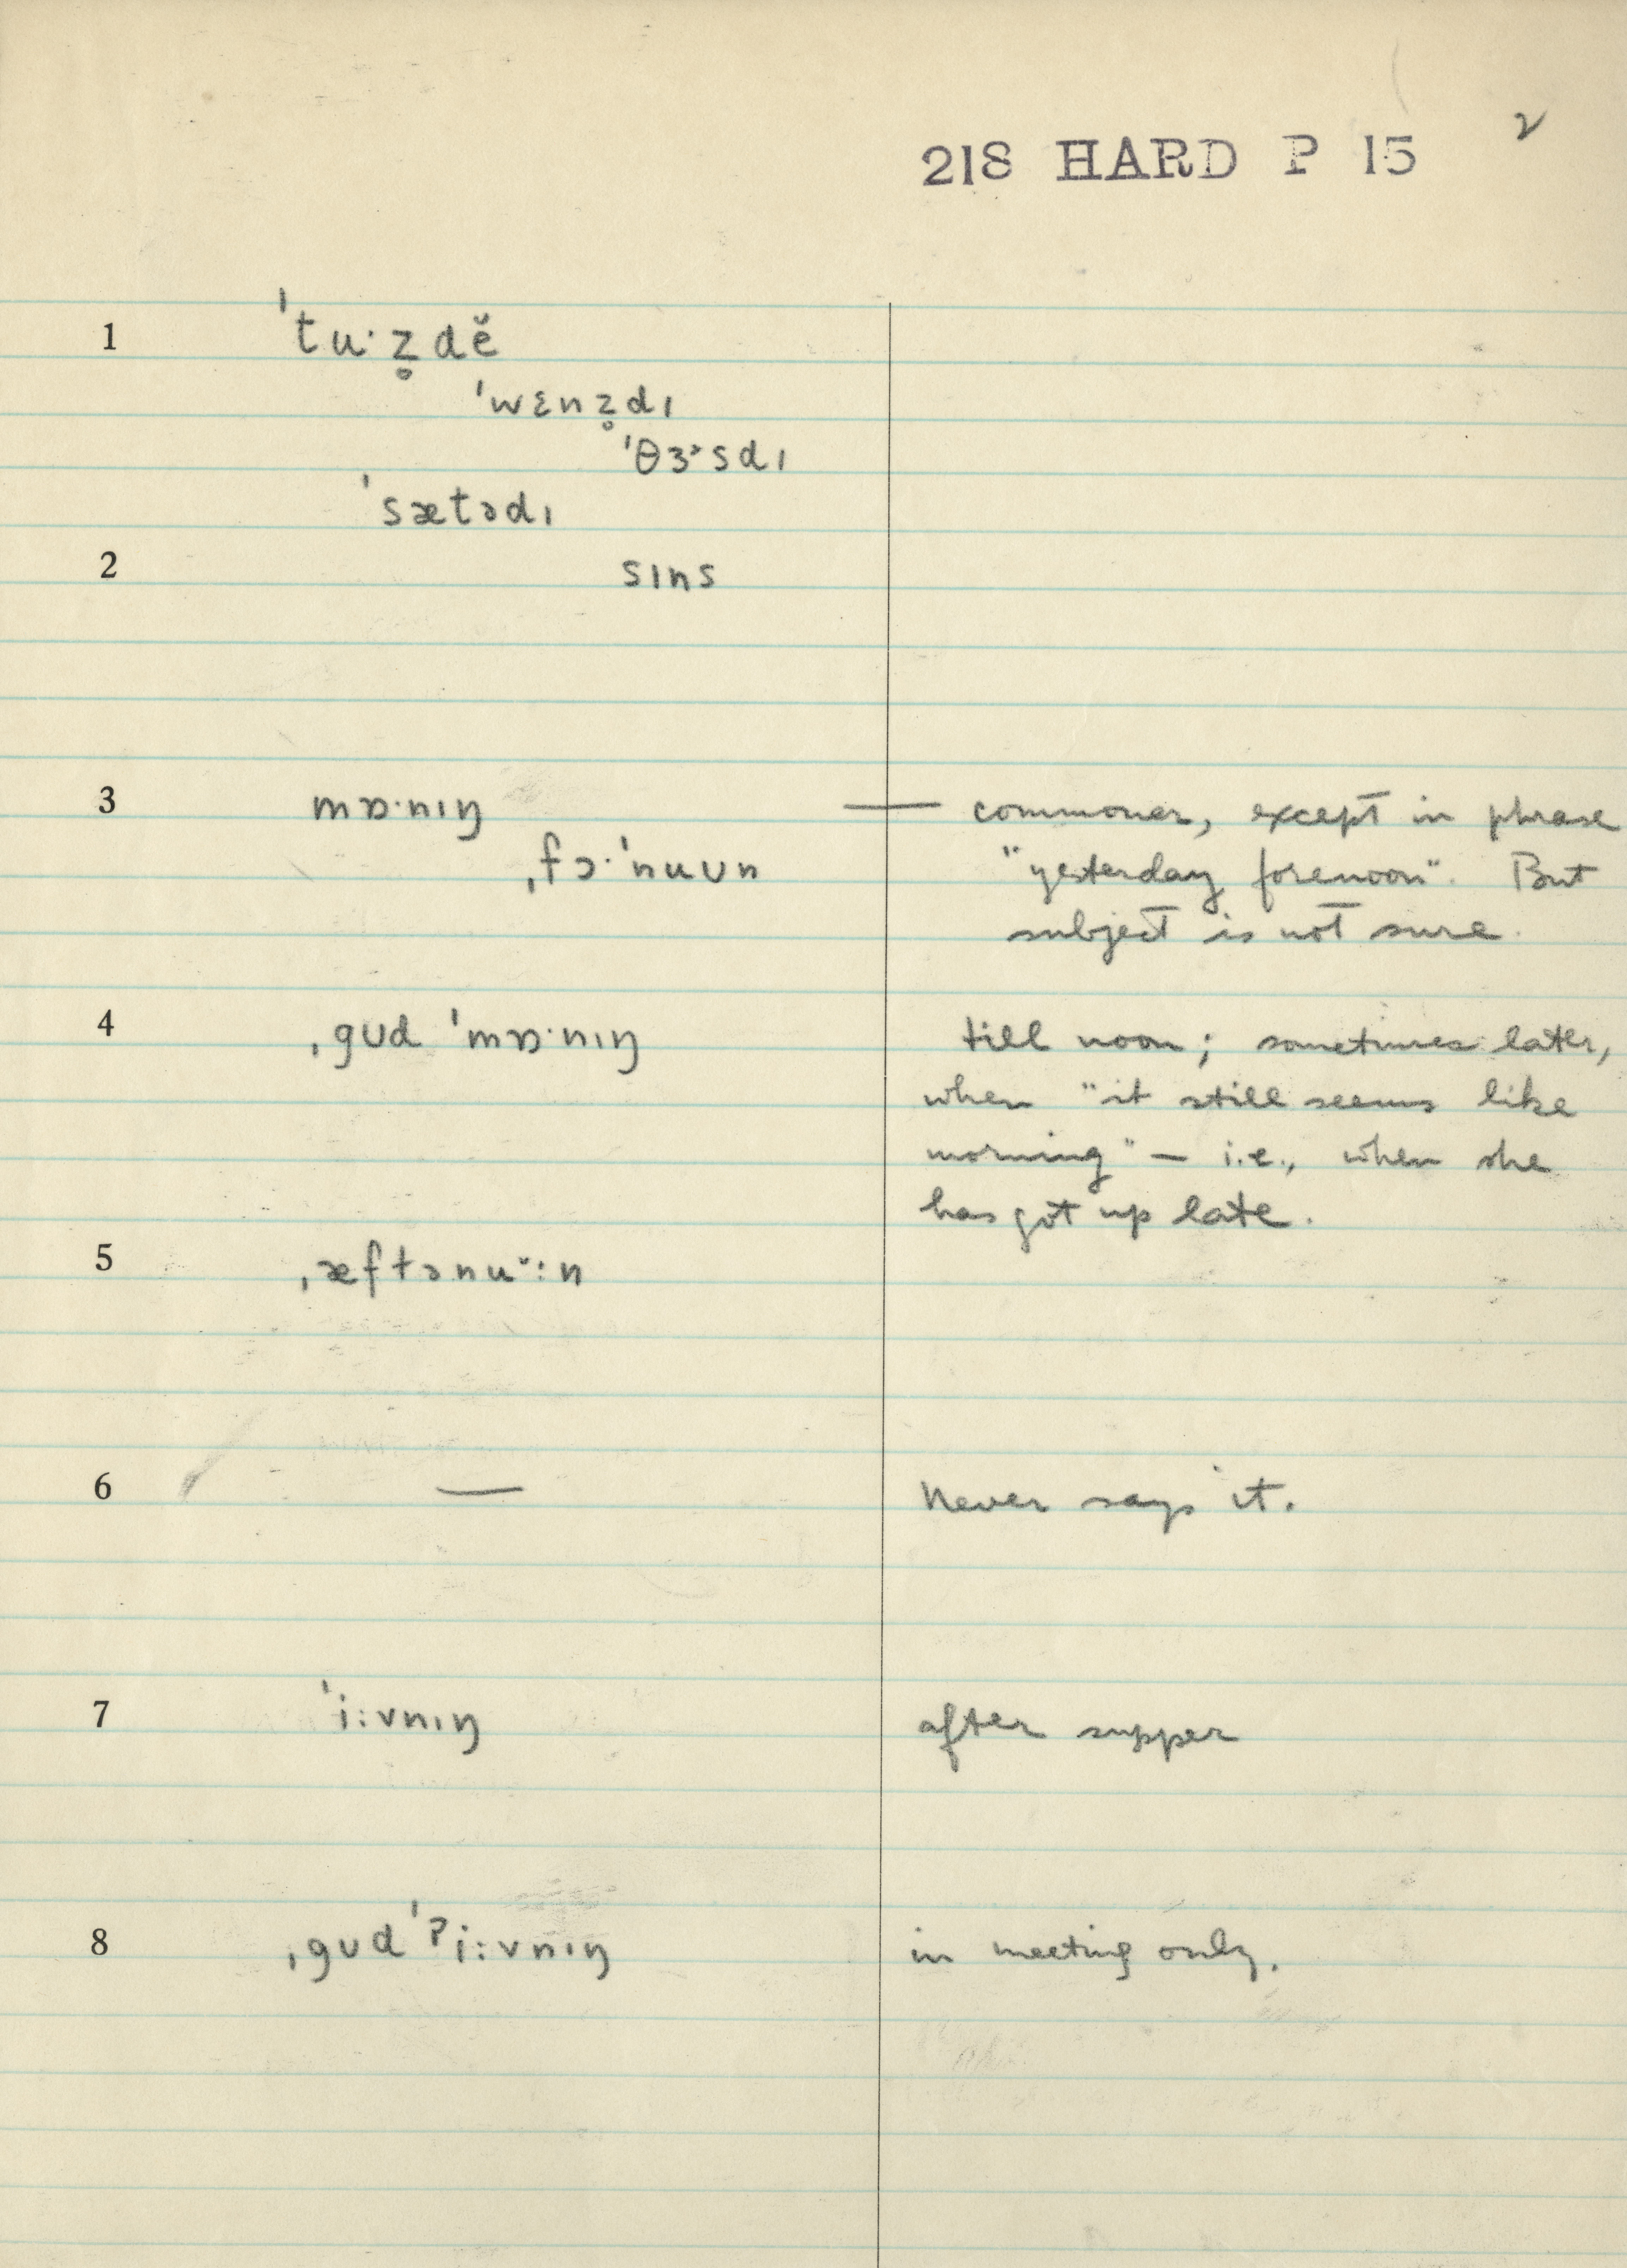 218 HARD P 15 2
1 ˈtu·z̥dĕ
ˈwɛnz̥dɪ
ˈθɜ˞sdɪ
ˈsætədɪ
2 sɪns
3 mɒ·nɪŋ — commoner, except in phrase
ˌfɔ·ˈnuᴜn "yesterday forenoon". But
subject is not sure.
4 ˌgᴜd ˈmɒ·nɪŋ till noon; sometimes later,
when "it still seems like
morning" — i.e., when she
has got up late.
5 ˌæftənu˘:n
6 — Never says it.
7 ˈi:vnɪŋ after supper
8 ˌgᴜd ˈʔi:vnɪŋ in meeting only.